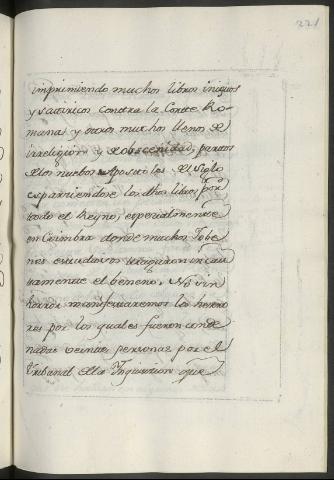 221
imprimiendo muchos libros iniquos
y satiricos contra la Corte Ro-
mana, y otros muchos llenos de
irreligion, y de obscenidad, partos
de los nuebos Apostoles del Siglo
esparziendose los dhos libros por
todo el Reyno, especialmente
en Coimbra donde muchos Jobe
nes estudiosos tragaron incau
tamente el beneno. No sin
horror manifestaremos los herro
res por los quales fueron conde
nadas veinte personas por el
tribunal de la Inquisicion que